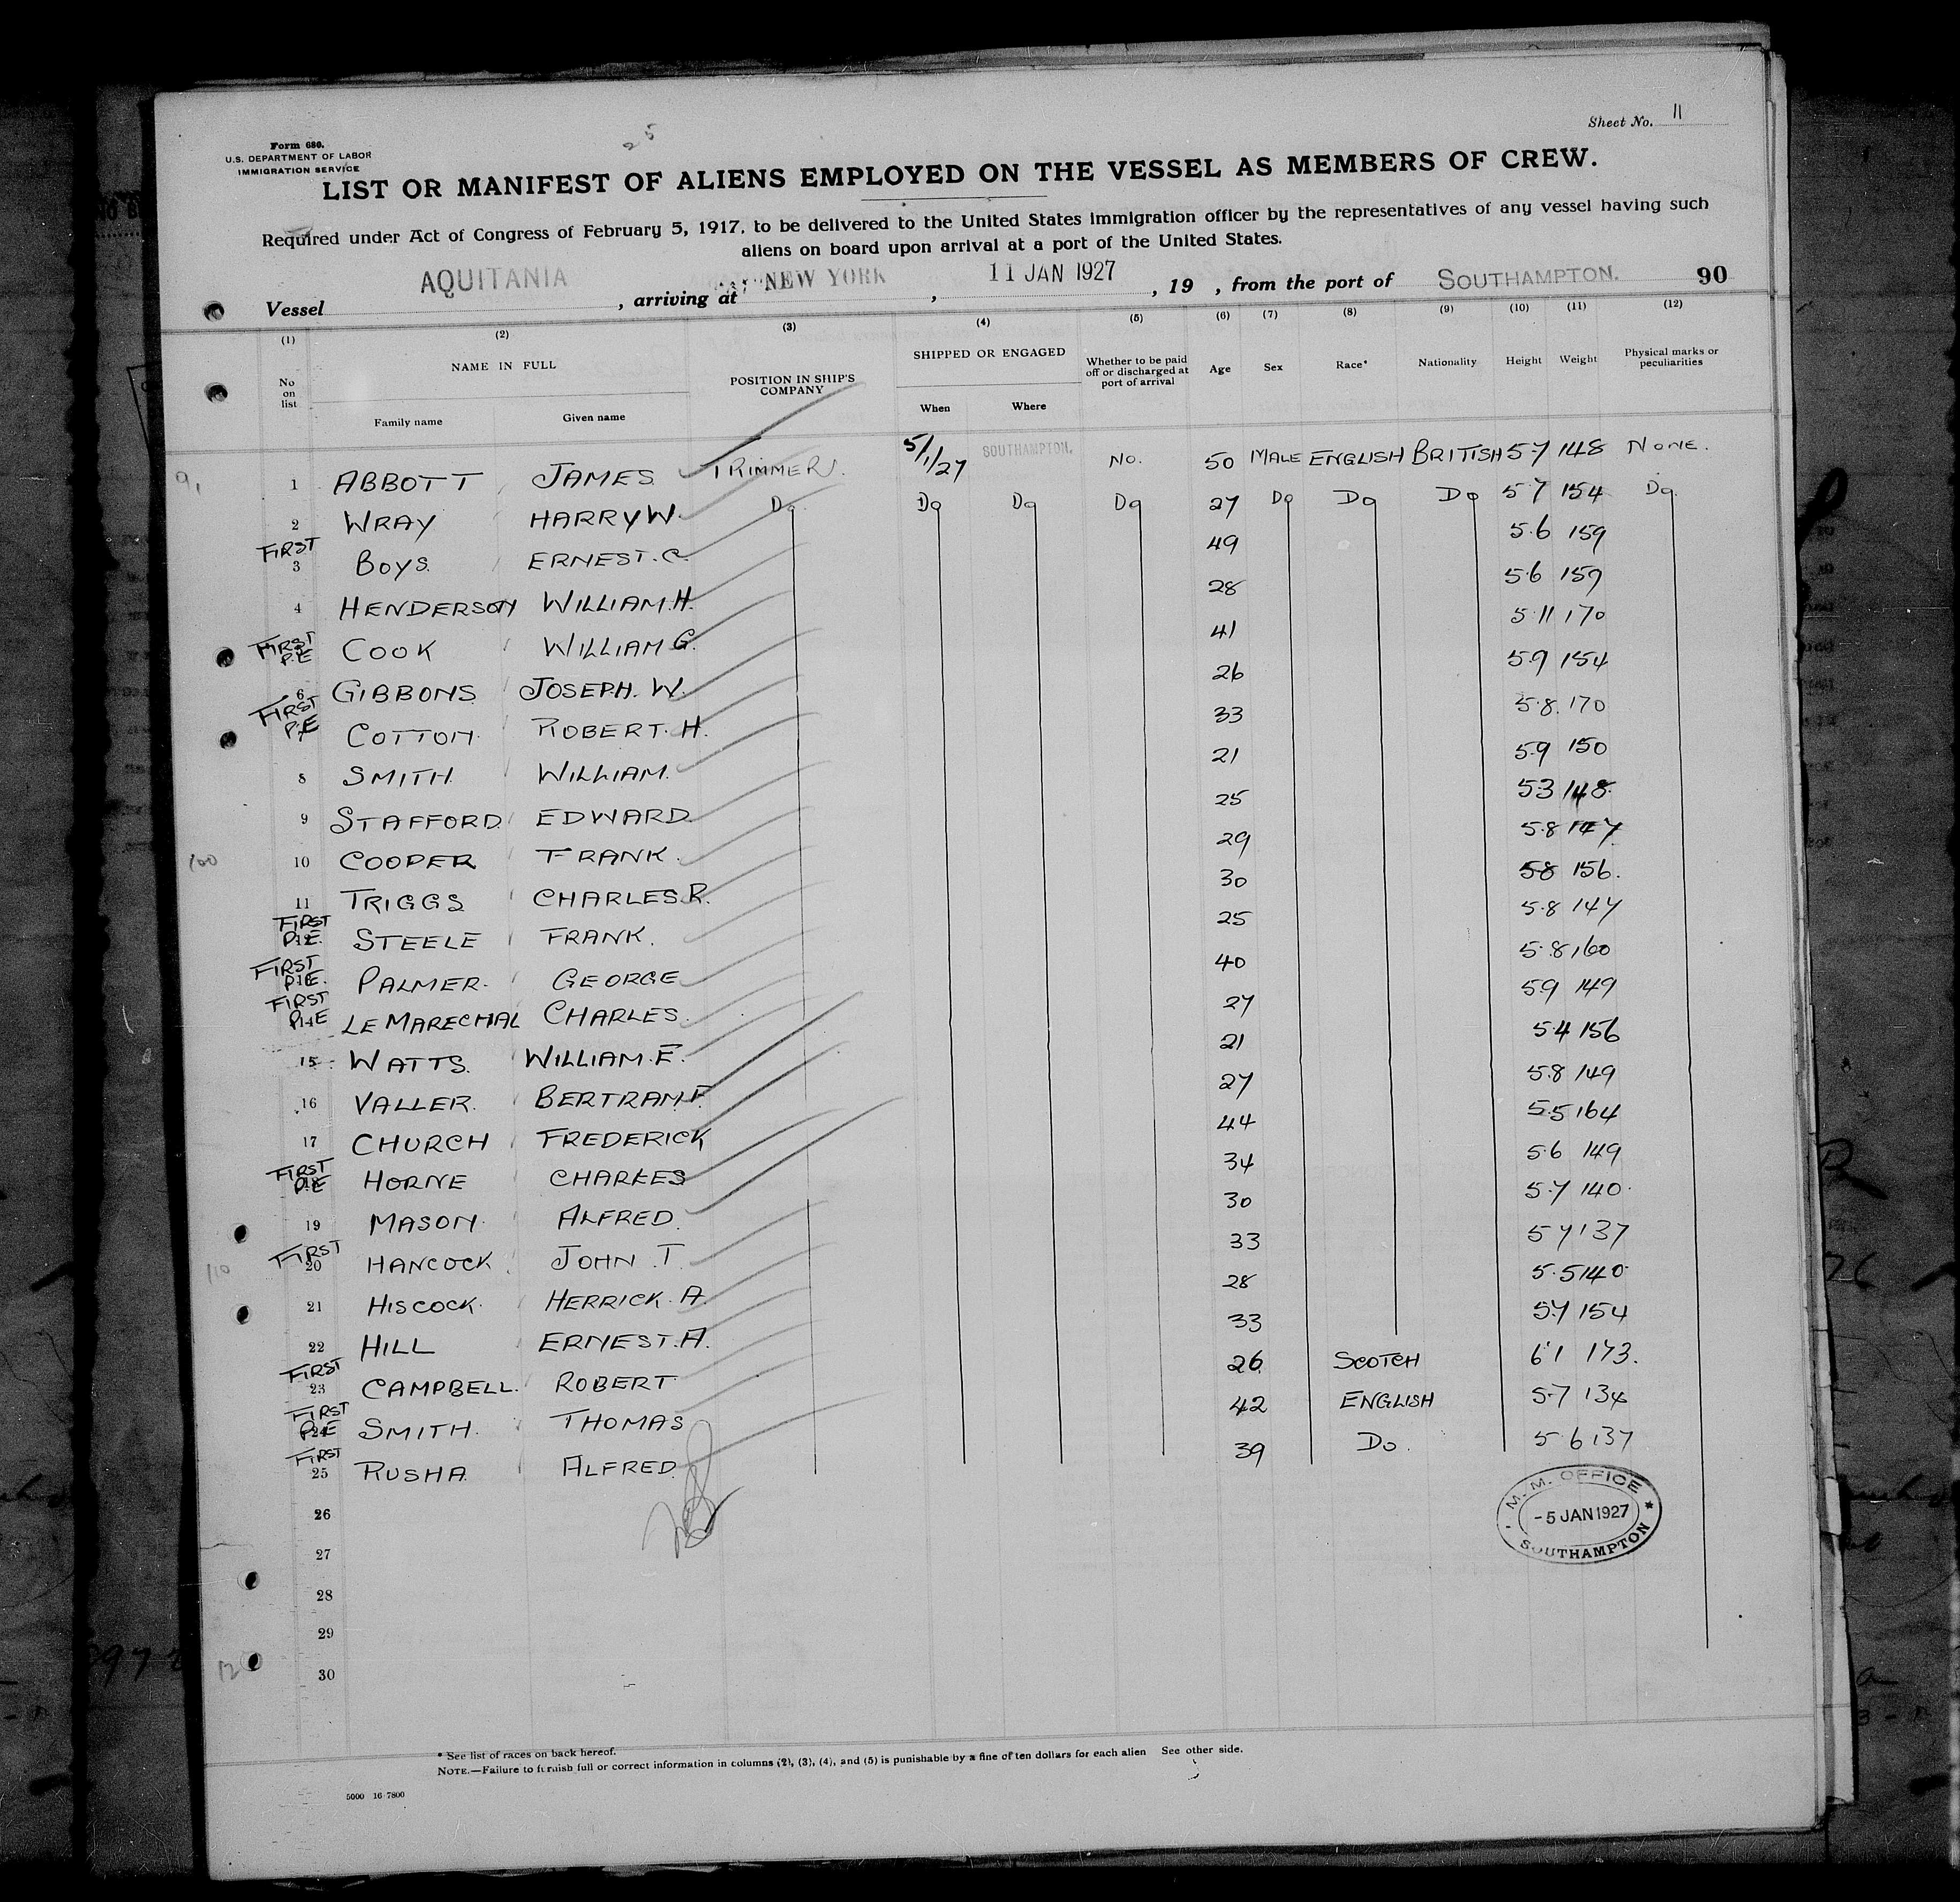 Sheet No. 11
Form 680.
U.S. DEPARTMENT OF LABOR
IMMIGRATION SERVICE
25
LIST OR MANIFEST OF ALIENS EMPLOYED ON THE VESSEL AS MEMBERS OF CREW.
Required under Act of Congress of February 5, 1917, to be delivered to the United States immigration officer by the representatives of any vessel having such
aliens on board upon arrival at a port of the United States.
Vessel AQUITANIA, arriving at NEW YORK, 11 JAN 1927, 19 , from the port of SOUTHAMPTON. 90
(1) (2) (3) (4) (5) (6) (7) (8) (9) (10) (11) (12)
No on list NAME IN FULL Family name Given name POSITION IN SHIP'S COMPANY SHIPPED OR ENGAGED When Where Whether to be paid off or discharged at port of arrival Age Sex Race* Nationality Height Weight Physical marks or peculiarities
91 1 ABBOTT JAMES TRIMMER 5/1/27 SOUTHAMPTON. No. 50 MALE ENGLISH BRITISH 5·7 148 NONE.
2 WRAY HARRY W. Do Do Do Do 27 Do Do Do 5·7 154 Do
FIRST 3 BOYS. ERNEST. C. 49 5·6 159
4 HENDERSON WILLIAM. H. 28 5·6 159
FIRST P.E COOK WILLIAM G. 41 5·11 170
6 GIBBONS JOSEPH. W. 26 5·9 154
FIRST P.E COTTON. ROBERT. H. 33 5·8. 170
8 SMITH. WILLIAM. 21 5·9 150
9 STAFFORD EDWARD 25 5·3 148.
100 10 COOPER FRANK. 29 5·8 147
11 TRIGGS CHARLES. R. 30 5·8 156.
FIRST P.E. 12 STEELE FRANK. 25 5·8 147
FIRST P.E. PALMER. GEORGE 40 5·8 160
FIRST P.E 14 LE MARECHAL CHARLES. 27 5·9 149
15 WATTS. WILLIAM. E. 21 5·4 156
16 VALLER. BERTRAM. F. 27 5·8 149
17 CHURCH FREDERICK 44 5·5 164
FIRST P.E HORNE CHARLES 34 5·6 149
19 MASON. ALFRED. 30 5·7 140.
110 FIRST 20 HANCOCK. JOHN. T. 33 5·7 137
21 HISCOCK. HERRICK. A. 28 5·5 140
22 HILL ERNEST. A. 33 5·7 154
FIRST 23 CAMPBELL. ROBERT 26 SCOTCH 6·1 173.
FIRST P.E 24 SMITH. THOMAS 42 ENGLISH 5·7 134
FIRST 25 RUSHA ALFRED. 39 Do. 5·6 137
26
27
28
29
120 30
M. M. OFFICE
-5 JAN 1927
SOUTHAMPTON
* See list of races on back hereof.
NOTE.—Failure to furnish full or correct information in columns (2), (3), (4), and (5) is punishable by a fine of ten dollars for each alien See other side.
5000 16-7800